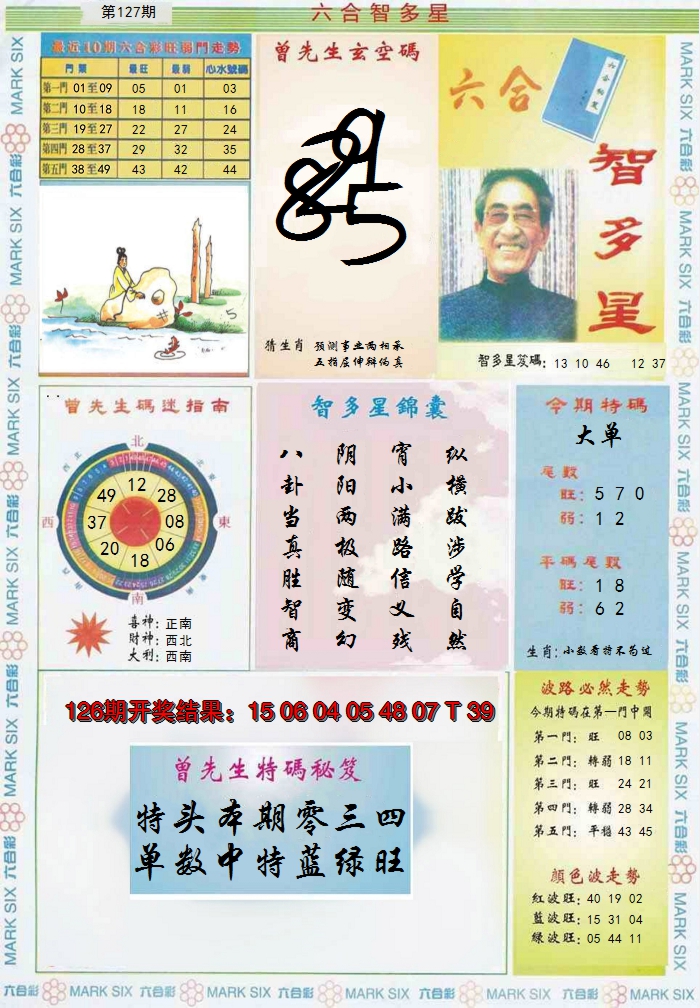 第127期
六合智多星
最近10期六合彩旺弱門走勢
門類 最旺 最弱 心水號碼
第一門 01至09 05 01 03
第二門 10至18 18 11 16
第三門 19至27 22 27 24
第四門 28至37 29 32 35
第五門 38至49 43 42 44
曾先生玄空碼
猜生肖 预测事业两相承
五指屈伸辩伪真
六合
智多星
智多星笈碼: 13 10 46 12 37
曾先生碼迷指南
北
東
南
西
12
28
08
06
18
20
37
49
喜神: 正南
財神: 西北
大利: 西南
智多星錦囊
纵横跋涉学自然
宵小满路信义残
阴阳两极随变幻
八卦当真胜智商
今期特碼
大单
尾數
旺: 5 7 0
弱: 1 2
平碼尾數
旺: 1 8
弱: 6 2
生肖: 小数看特不为过
126期开奖结果: 15 06 04 05 48 07 T 39
曾先生特碼秘笈
特头本期零三四
单数中特蓝绿旺
波路必然走勢
今期特碼在第一門中開
第一門: 旺 08 03
第二門: 轉弱 18 11
第三門: 旺 24 21
第四門: 轉弱 28 34
第五門: 平穩 43 45
顏色波走勢
紅波旺: 40 19 02
藍波旺: 15 31 04
綠波旺: 05 44 11
MARK SIX 六合彩